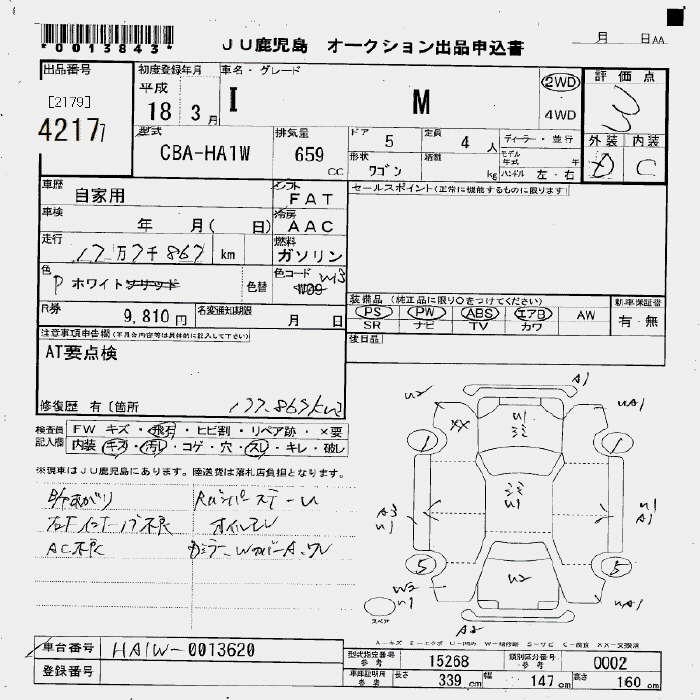 *0013843*
JU鹿児島 オークション出品申込書
月 日AA
出品番号
[2179]
4217 7
初度登録年月
平成
18 3月
車名・グレード
I M
2WD
4WD
評価点
3
外装 内装
D C
型式
CBA-HA1W
排気量
659
CC
ドア 5
定員 4 人
形状 ワゴン
積載 kg
ディーラー・並行
モデル年式 年
ハンドル 左・右
車歴
自家用
シフト
FAT
セールスポイント(正常に機能するものに限ります)
車検
年 月( 日)
冷房
AAC
走行
17万7千867 km
燃料
ガソリン
色
P ホワイトソリッド
色替
色コード W13
W09
R券
9,810円
名変通知期限
月 日
装備品(純正品に限り○をつけてください)
PS PW ABS エアB AW
SR ナビ TV カワ
新車保証書
有・無
後日品
注意事項申告欄(不具合内容等は具体的に記入して下さい)
AT要点検
修復歴 有[箇所
177.867km
検査員記入欄
FW キズ・飛石・ヒビ割・リペア跡・×要
内装・キズ・汚レ・コゲ・穴・スレ・キレ・破レ
※現車はJU鹿児島にあります。陸送費は落札店負担となります。
オイルモレ
AC不良
U2
A1
UA1
XX
U1
1
1
A3
U1
U1
U1
A1
5
5
W2
U1
U2
UA1
A2
スペア
車台番号
HA1W-0013620
登録番号
型式指定番号
参考
15268
類別区分番号
参考
0002
車庫証明用
参考
長さ 339 cm
幅 147 cm
高さ 160 cm